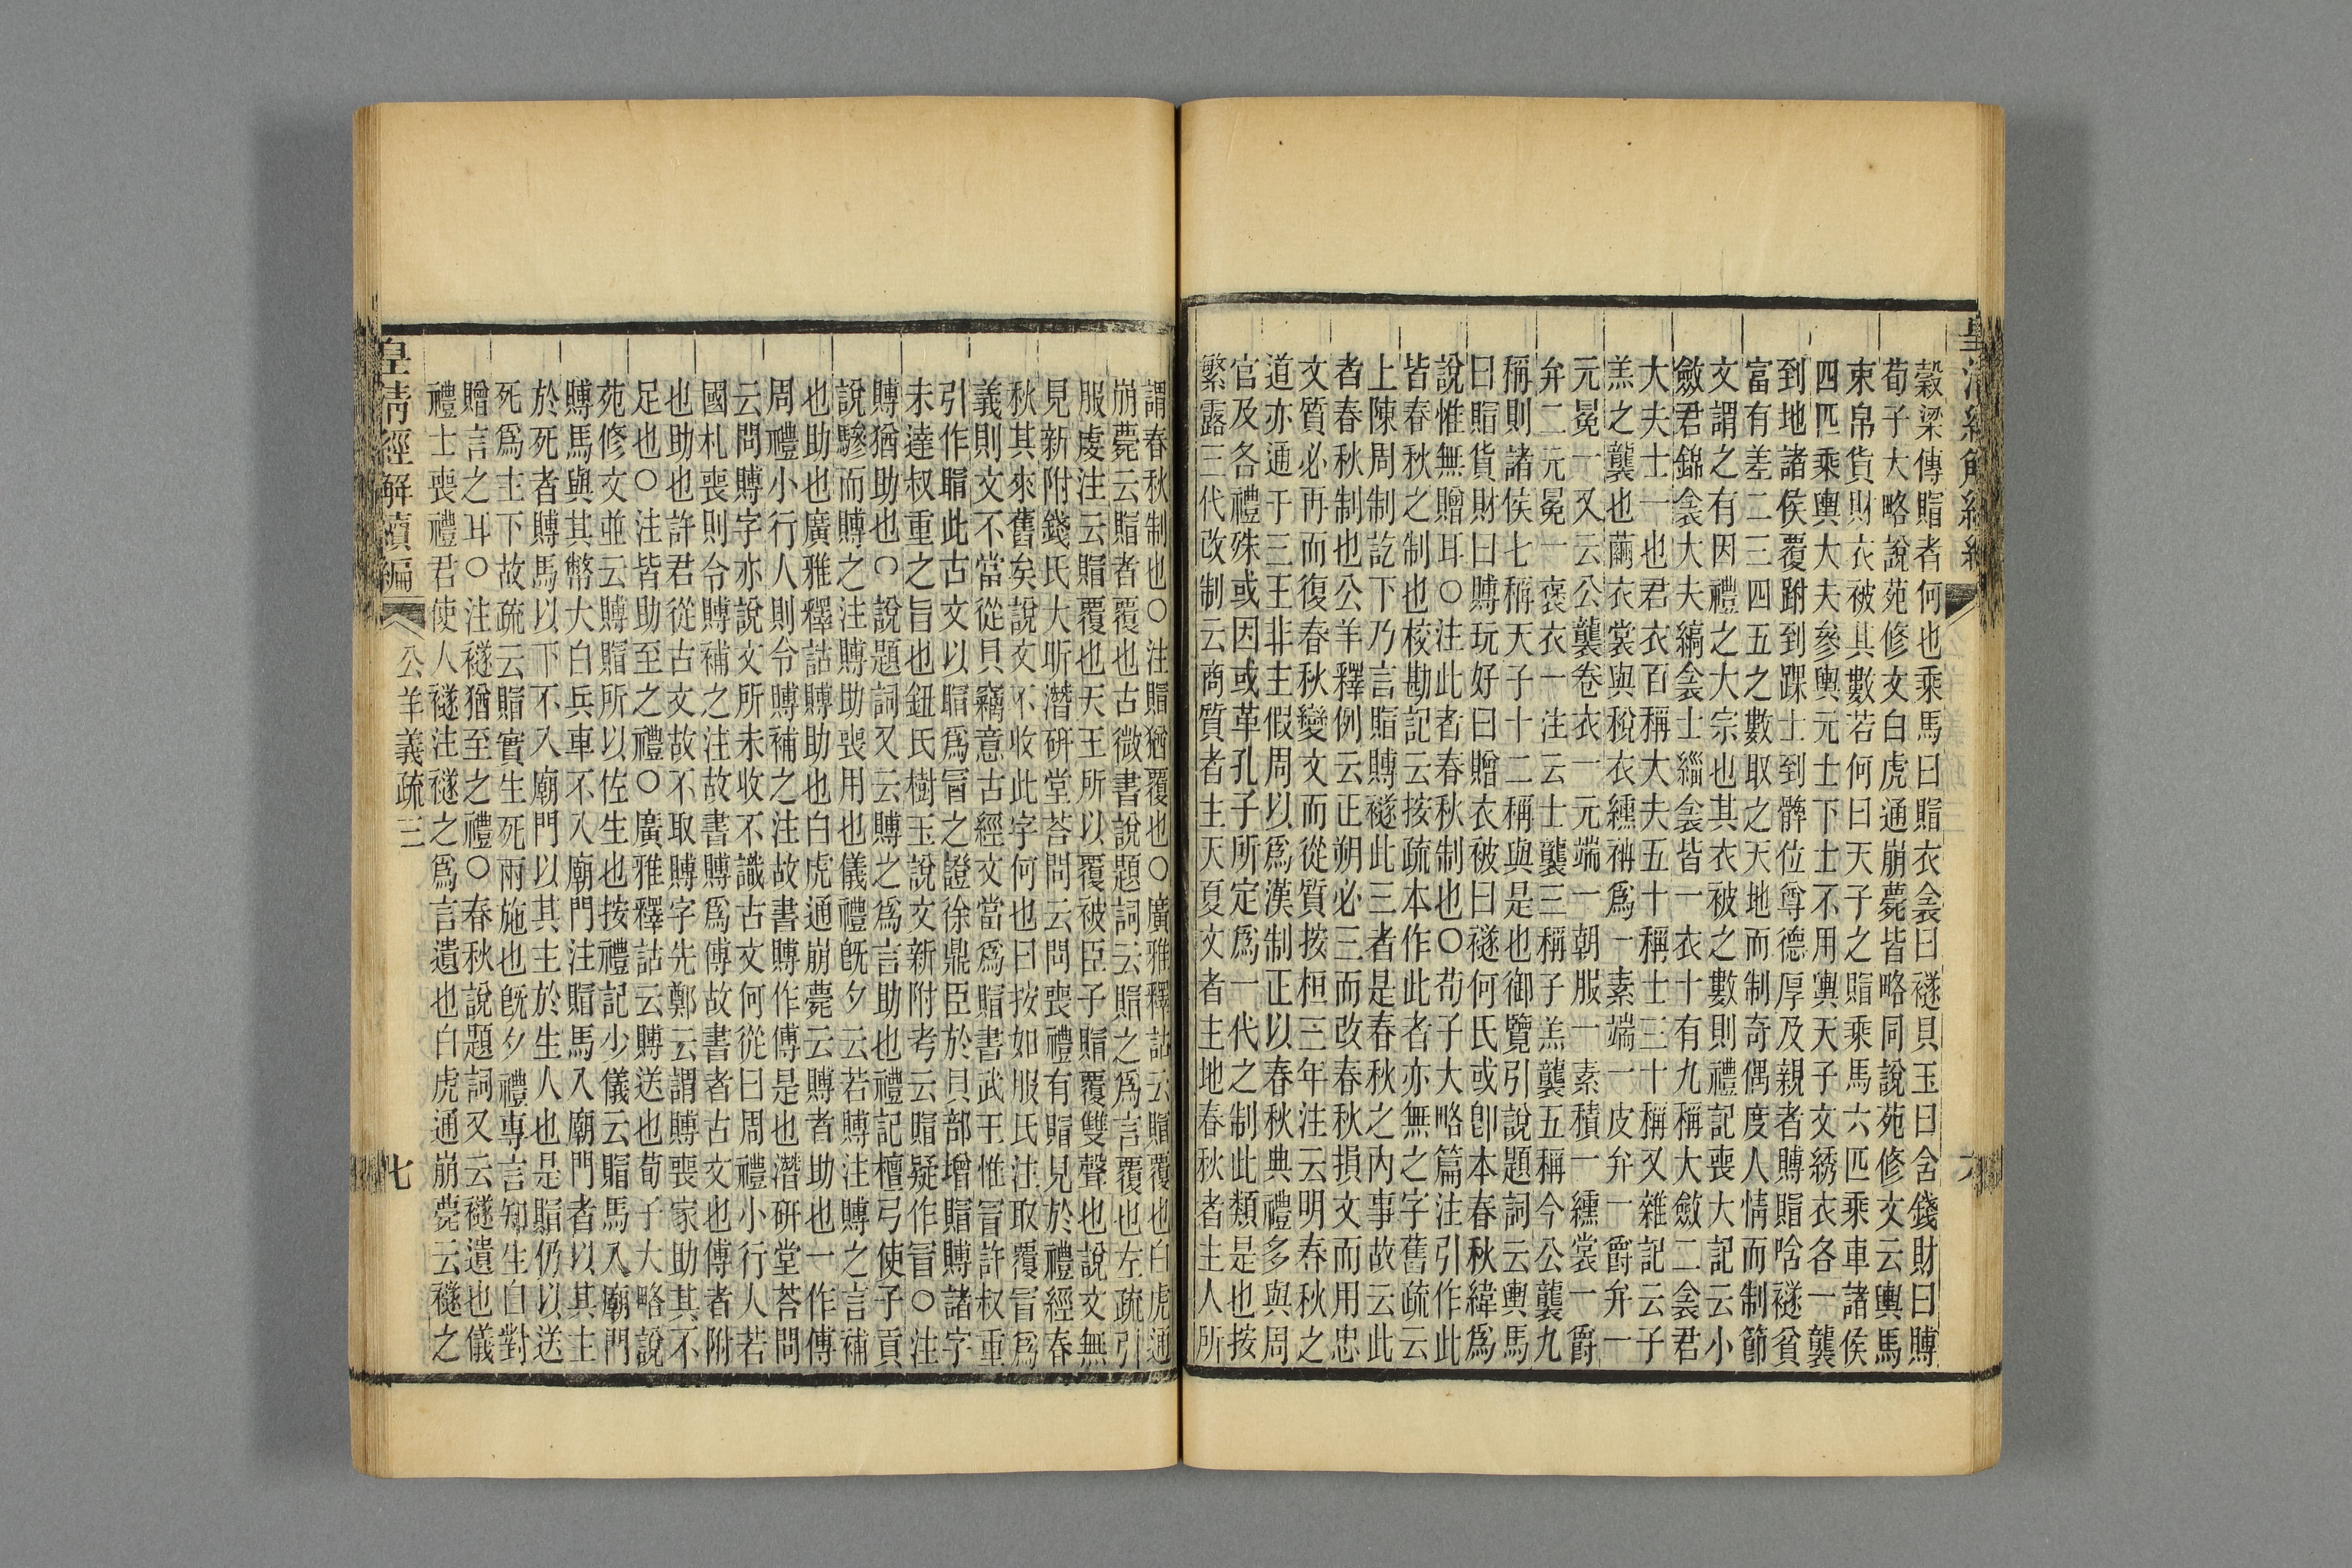 穀梁傳賵者何也乘馬曰賵衣衾曰襚貝玉曰含錢財曰賻
荀子大略說苑修文白虎通崩薨皆略同說苑修文云輿馬
束帛貨財衣被其數若何曰天子之賵乘馬六匹乘車諸侯
四匹乘輿大夫參輿元士下士不用輿天子文綉衣各一襲
到地諸侯覆跗到踝士到髀位尊德厚及親者賻賵唅襚貧
富有差二三四五之數取之天地而制奇偶度人情而制節
文謂之有因禮之大宗也其衣被之數則禮記喪大記云小
斂君錦衾大夫縞衾士緇衾皆一衣十有九稱大斂二衾君
大夫士一也君衣百稱大夫五十稱士三十稱又雜記云子
羔之襲也繭衣裳與稅衣纁袡爲一素端一皮弁一爵弁一
元冕一又云公襲卷衣一元端一朝服一素積一纁裳一爵
弁二元冕一褒衣一注云士襲三稱子羔襲五稱今公襲九
稱則諸侯七稱天子十二稱與是也御覽引說題詞云輿馬
曰賵貨財曰賻玩好曰贈衣被曰襚何氏或卽本春秋緯爲
說惟無贈耳○注此者春秋制也○荀子大略篇注引作此
皆春秋之制也校勘記云按疏本作此者亦無之字舊疏云
上陳周制訖下乃言賵賻襚此三者是春秋之內事故云此
者春秋制也公羊釋例云正朔必三而改春秋損文而用忠
文質必再而復春秋變文而從質按桓三年注云明春秋之
道亦通于三王非主假周以爲漢制正以春秋典禮多與周
官及各禮殊或因或革孔子所定爲一代之制此類是也按
繁露三代改制云商質者主天夏文者主地春秋者主人所
謂春秋制也○注賵猶覆也○廣雅釋詁云賵覆也白虎通
崩薨云賵者覆也古微書說題詞云賵之爲言覆也左疏引
服虔注云賵覆也天王所以覆被臣子賵覆雙聲也說文無
見新附錢氏大昕潛研堂荅問云問喪禮有賵見於禮經春
秋其來舊矣說文不收此字何也曰按如服氏注取覆冒爲
義則文不當從貝竊意古經文當爲賵書武王惟冒許叔重
引作賵此古文以賵爲冒之證徐鼎臣於貝部增賵賻諸字
未達叔重之旨也鈕氏樹玉說文新附考云賵疑作冒○注
賻猶助也○說題詞又云賻之爲言助也禮記檀弓使子貢
說驂而賻之注賻助喪用也儀禮旣夕云若賻注賻之言補
也助也廣雅釋詁賻助也白虎通崩薨云賻者助也一作傅
周禮小行人則令賻補之注故書賻作傅是也潛研堂荅問
云問賻字亦說文所未收不識古文何從曰周禮小行人若
國札喪則令賻補之注故書賻爲傅故書者古文也傅者附
也助也許君從古文故不取賻字先鄭云謂賻喪家助其不
足也○注皆助至之禮○廣雅釋詁云賻送也荀子大略說
苑修文並云賻賵所以佐生也按禮記少儀云賵馬入廟門
賻馬與其幣大白兵車不入廟門注賵馬入廟門者以其主
於死者賻馬以下不入廟門以其主於生人也是賵仍以送
死爲主下故疏云賵實生死兩施也旣夕禮專言知生白對
贈言之耳○注襚猶至之禮○春秋說題詞又云襚遺也儀
禮士喪禮君使人襚注襚之爲言遺也白虎通崩薨云襚之
皇淸經解續編
公羊義疏三
七